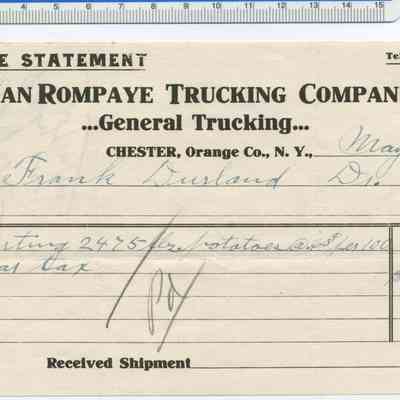 4 5 6 7 8 9 10 11 12 13 14 15
E STATEMENT
Te
AN ROMPAYE TRUCKING COMPAN
...General Trucking...
CHESTER, Orange Co., N. Y., May
Frank Durland Dr.
rting 2475 potatoes per 100
tax
Pd
Received Shipment